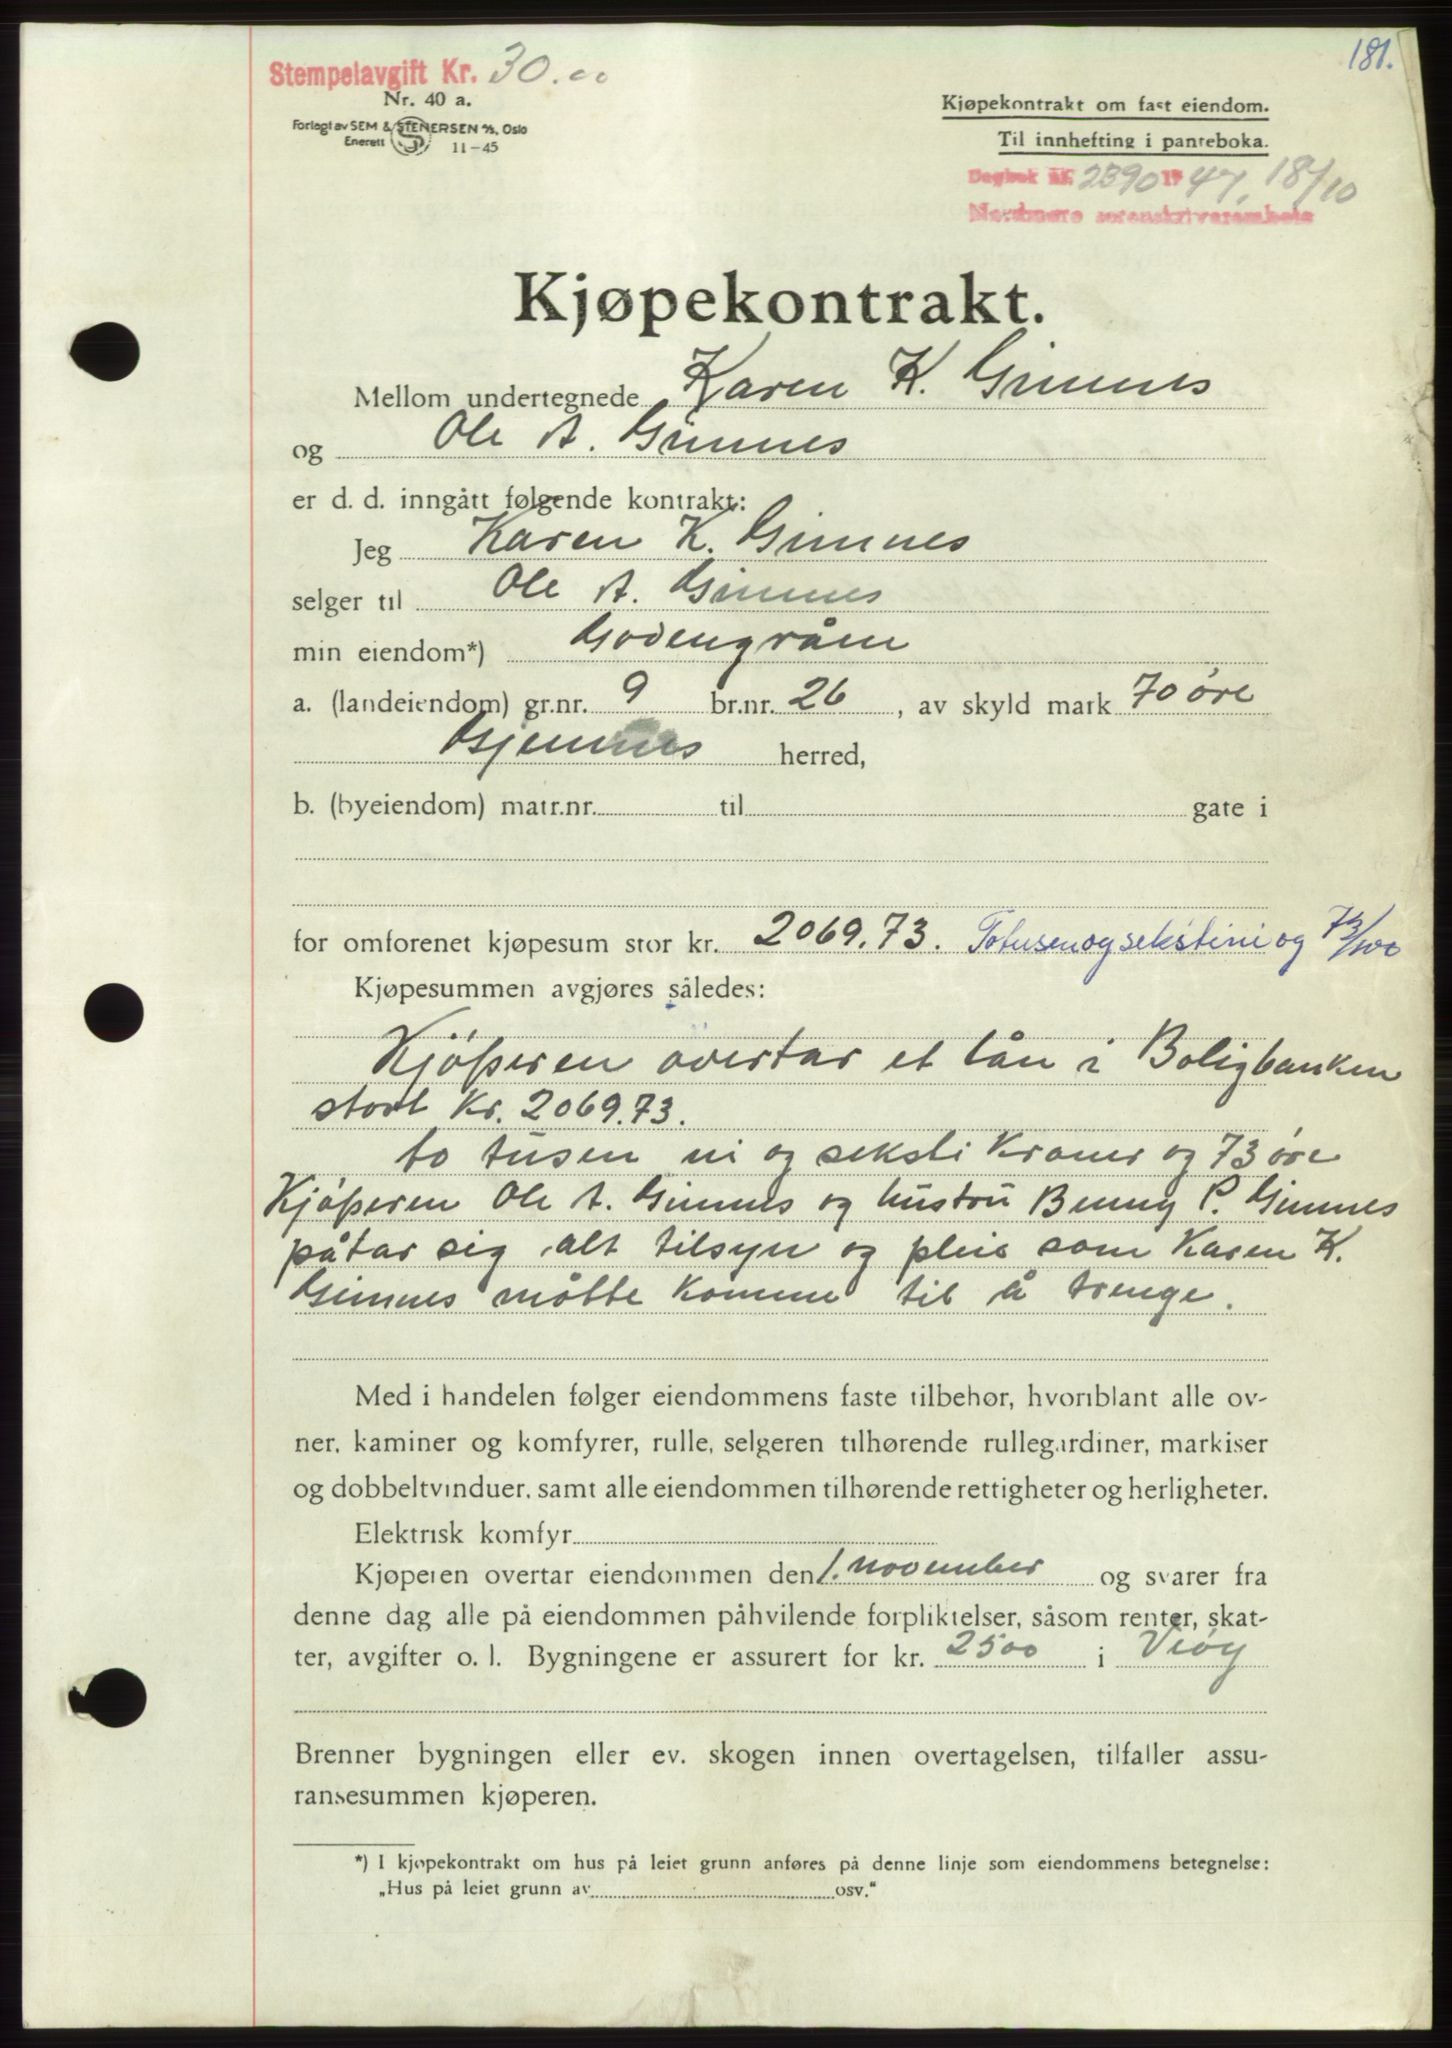 181.
Stempelavgift Kr. 30.00
Nr. 40 a.
Forlagt av SEM & STENERSEN A/S, Oslo
Enerett 11-45
Kjøpekontrakt om fast eiendom.
Til innhefting i panteboka.
Dagbok nr. 2390 19 47, 18/10
Nordmøre sorenskriverembete
Kjøpekontrakt.
Mellom undertegnede Karen K. Gimnes
og Ole A. Gimnes
er d. d. inngått følgende kontrakt:
Jeg Karen K. Gimnes
selger til Ole A. Gimnes
min eiendom*)
a. (landeiendom) gr.nr. 9 br.nr. 26, av skyld mark 70 øre
Gjemnes herred,
b. (byeiendom) matr.nr. til gate i
for omforenet kjøpesum stor kr. 2069.73. Totusenogsekstini og 73/100
Kjøpesummen avgjøres således:
Kjøperen overtar et lån i Boligbanken
stort Kr. 2069.73.
to tusen ni og seksti Kroner og 73 øre
Kjøperen Ole A. Gimnes og hustru Benny P. Gimnes
påtar sig alt tilsyn og pleie som Karen K.
Gimnes måtte komme til å trenge.
Med i handelen følger eiendommens faste tilbehør, hvoriblant alle ov-
ner, kaminer og komfyrer, rulle, selgeren tilhørende rullegardiner, markiser
og dobbeltvinduer, samt alle eiendommen tilhørende rettigheter og herligheter.
Elektrisk komfyr
Kjøperen overtar eiendommen den 1. november og svarer fra
denne dag alle på eiendommen påhvilende forpliktelser, såsom renter, skat-
ter, avgifter o. l. Bygningene er assurert for kr. 2500 i
Brenner bygningen eller ev. skogen innen overtagelsen, tilfaller assu-
ransesummen kjøperen.
*) I kjøpekontrakt om hus på leiet grunn anføres på denne linje som eiendommens betegnelse:
„Hus på leiet grunn av osv.“